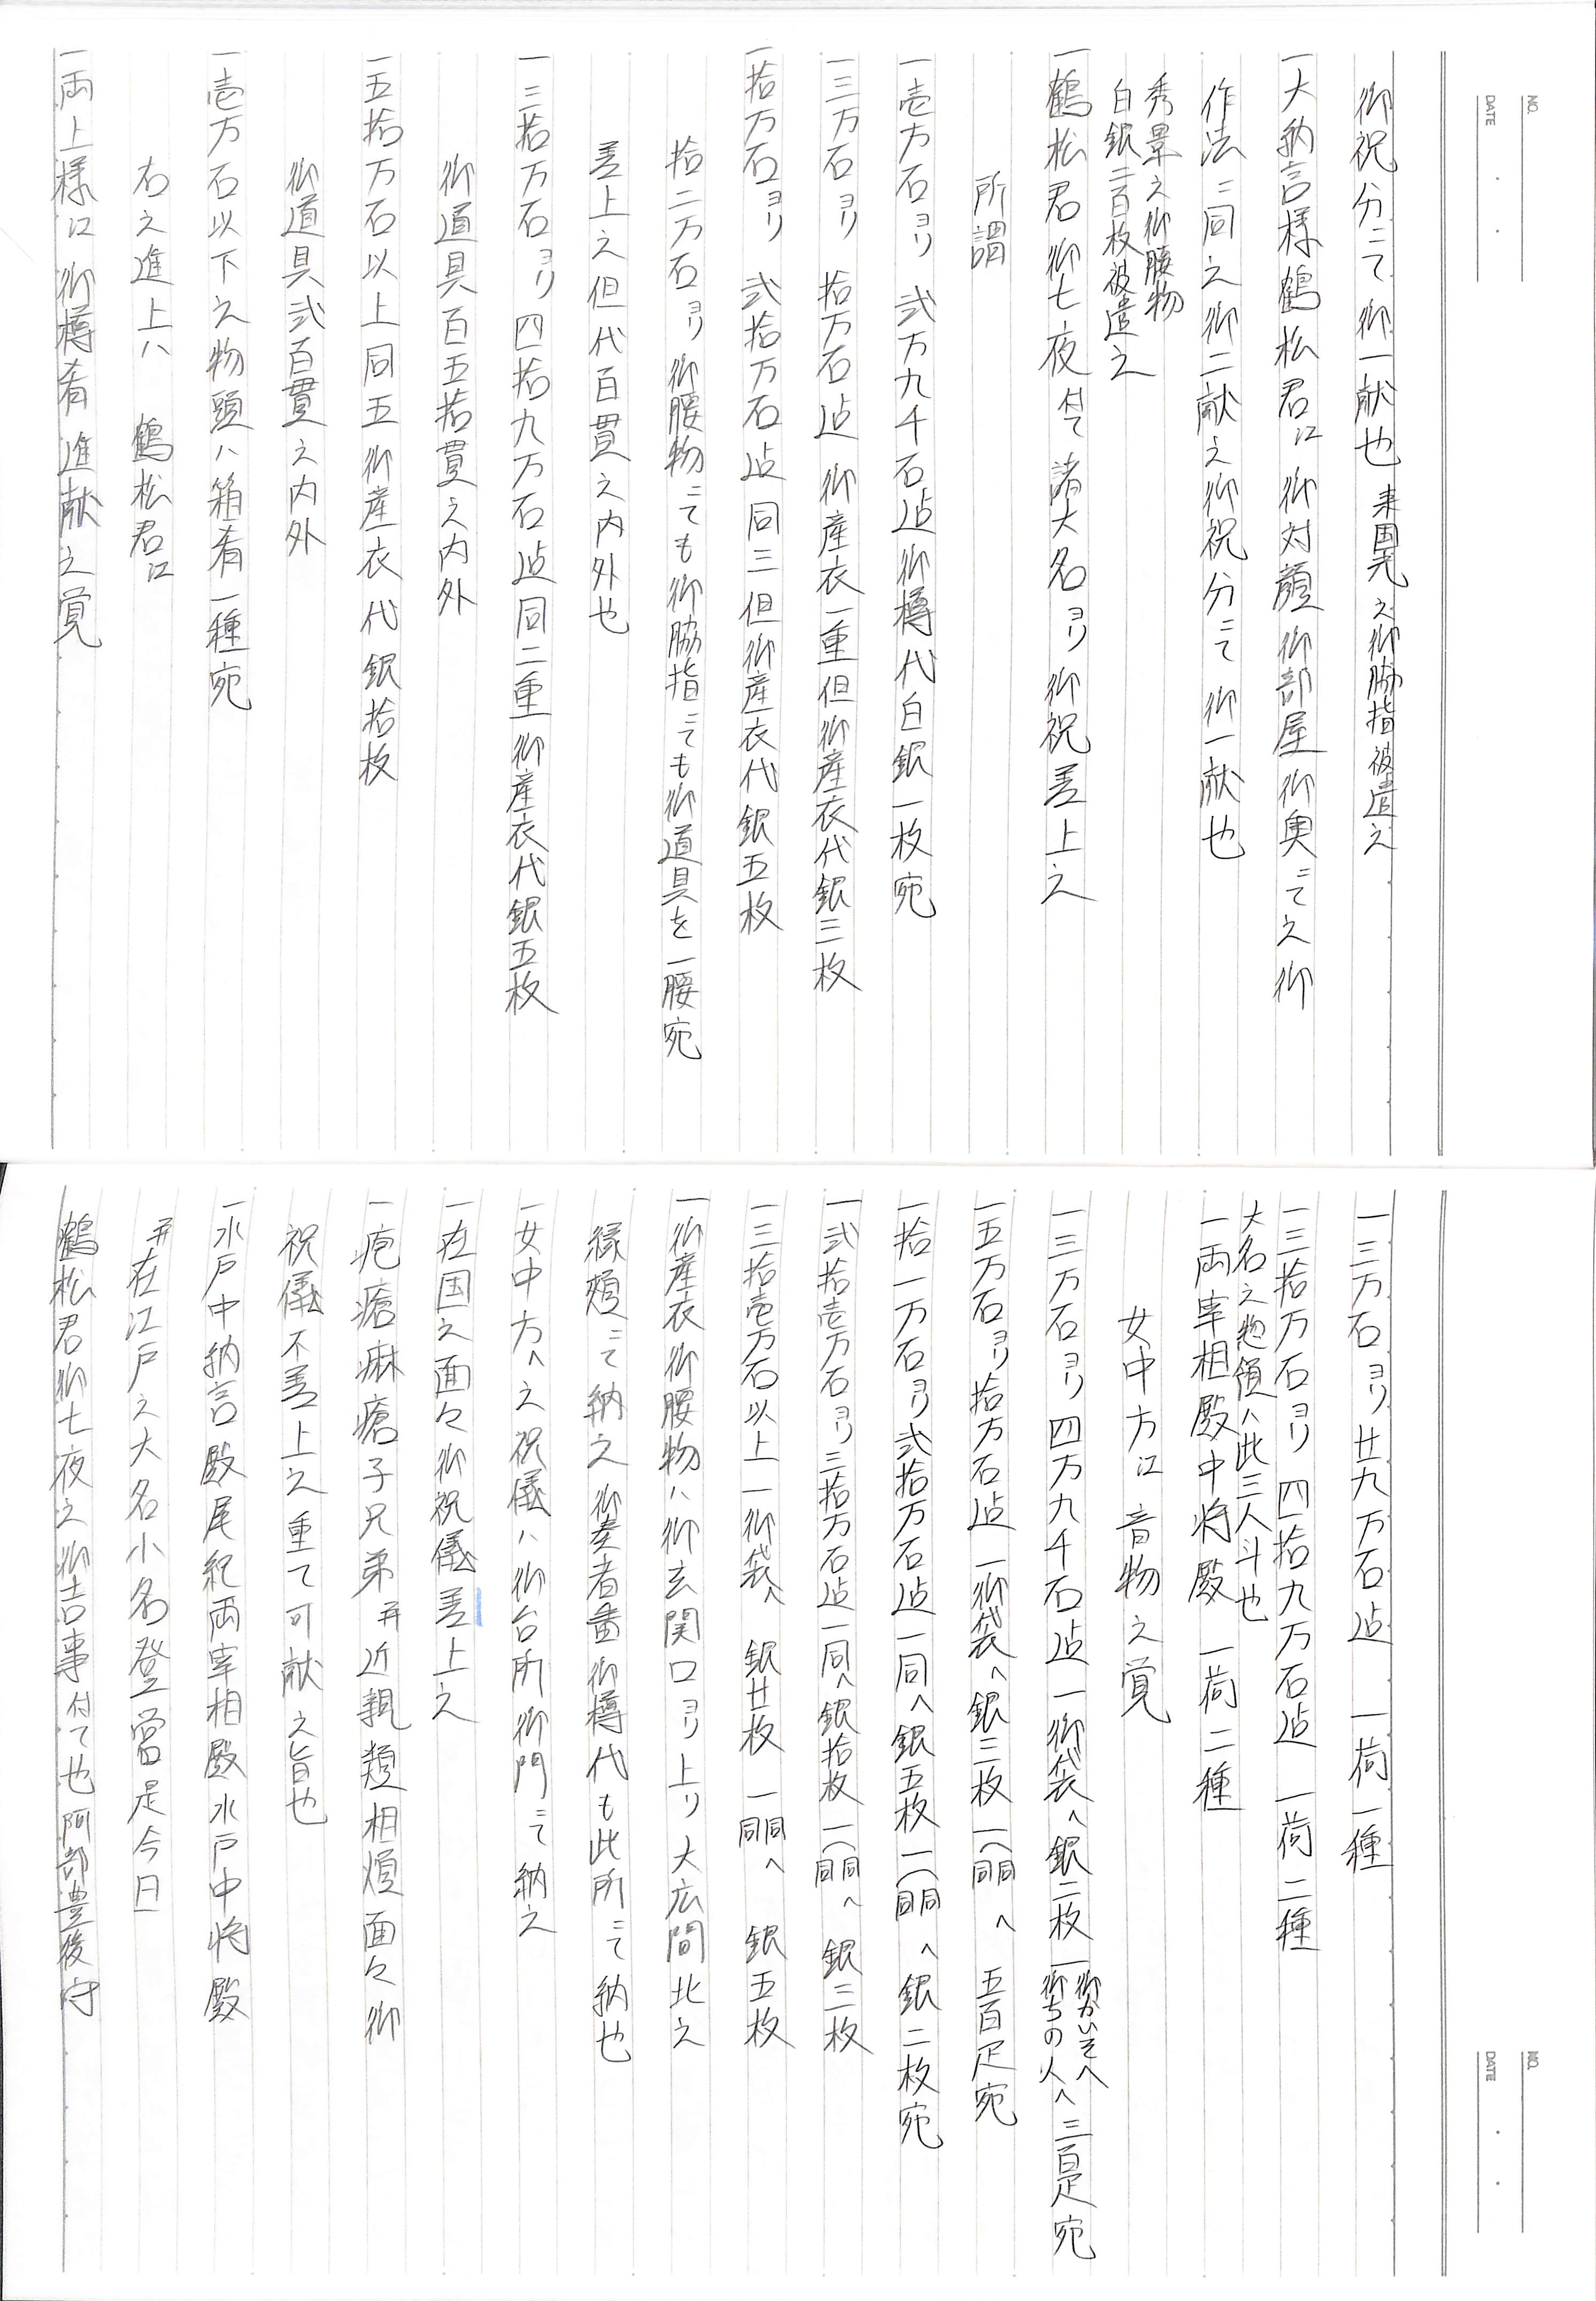 NO.
DATE
御祝分ニて御一献也 来国光之御脇指被遣之
一大納言様鶴松君江御対顔御部屋御奥ニて之御
作法ニ同之御二献之御祝分ニて御一献也
秀景之御腰物
白銀二百枚被遣之
一鶴松君御七夜付て諸大名ヨリ御祝差上之
所謂
一壱万石ヨリ弐万九千石迄御樽代白銀一枚宛
一三万石ヨリ拾万石迄御産衣一重但御産衣代銀三枚
一拾万石ヨリ弐拾万石迄同三但御産衣代銀五枚
拾二万石ヨリ御腰物ニても御脇指ニても御道具を一腰宛
差上之但代百貫之内外也
一三拾万石ヨリ四拾九万石迄同二重御産衣代銀五枚
御道具百五拾貫之内外
一五拾万石以上同五御産衣代銀拾枚
御道具弐百貫之内外
一壱万石以下之物頭ハ箱肴一種宛
右之進上ハ 鶴松君江
一両上様江御樽肴進献之覚
NO.
DATE
一三万石ヨリ廿九万石迄 一荷一種
一三拾万石ヨリ四拾九万石迄 一荷二種
大名之惣領ハ此三人斗也
一両宰相殿中将殿 一荷二種
女中方江音物之覚
一三万石ヨリ四万九千石迄一御袋へ銀二枚一御かいそへ御ちの人へ三百疋宛
一五万石ヨリ拾万石迄一御袋へ銀三枚一(同同へ 五百疋宛
一拾一万石ヨリ弐拾万石迄一同へ銀五枚一(同同へ銀二枚宛
一弐拾壱万石ヨリ三拾万石迄一同へ銀拾枚一(同同へ 銀三枚
一三拾壱万石以上一御袋へ 銀廿枚 一同同へ 銀五枚
一御産衣御腰物ハ御玄関口ヨリ上リ大広間北之
縁頬ニて納之御奏者番御樽代も此所ニて納也
一女中方へ之祝儀ハ御台所御門ニて納之
一在国之面々御祝儀差上之
一疱瘡麻瘡子兄弟并近親類相煩面々御
祝儀不差上之重て可献之旨也
一水戸中納言殿尾紀両宰相殿水戸中将殿
并在江戸之大名小名登営是今日
鶴松君御七夜之御吉事付て也阿部豊後守